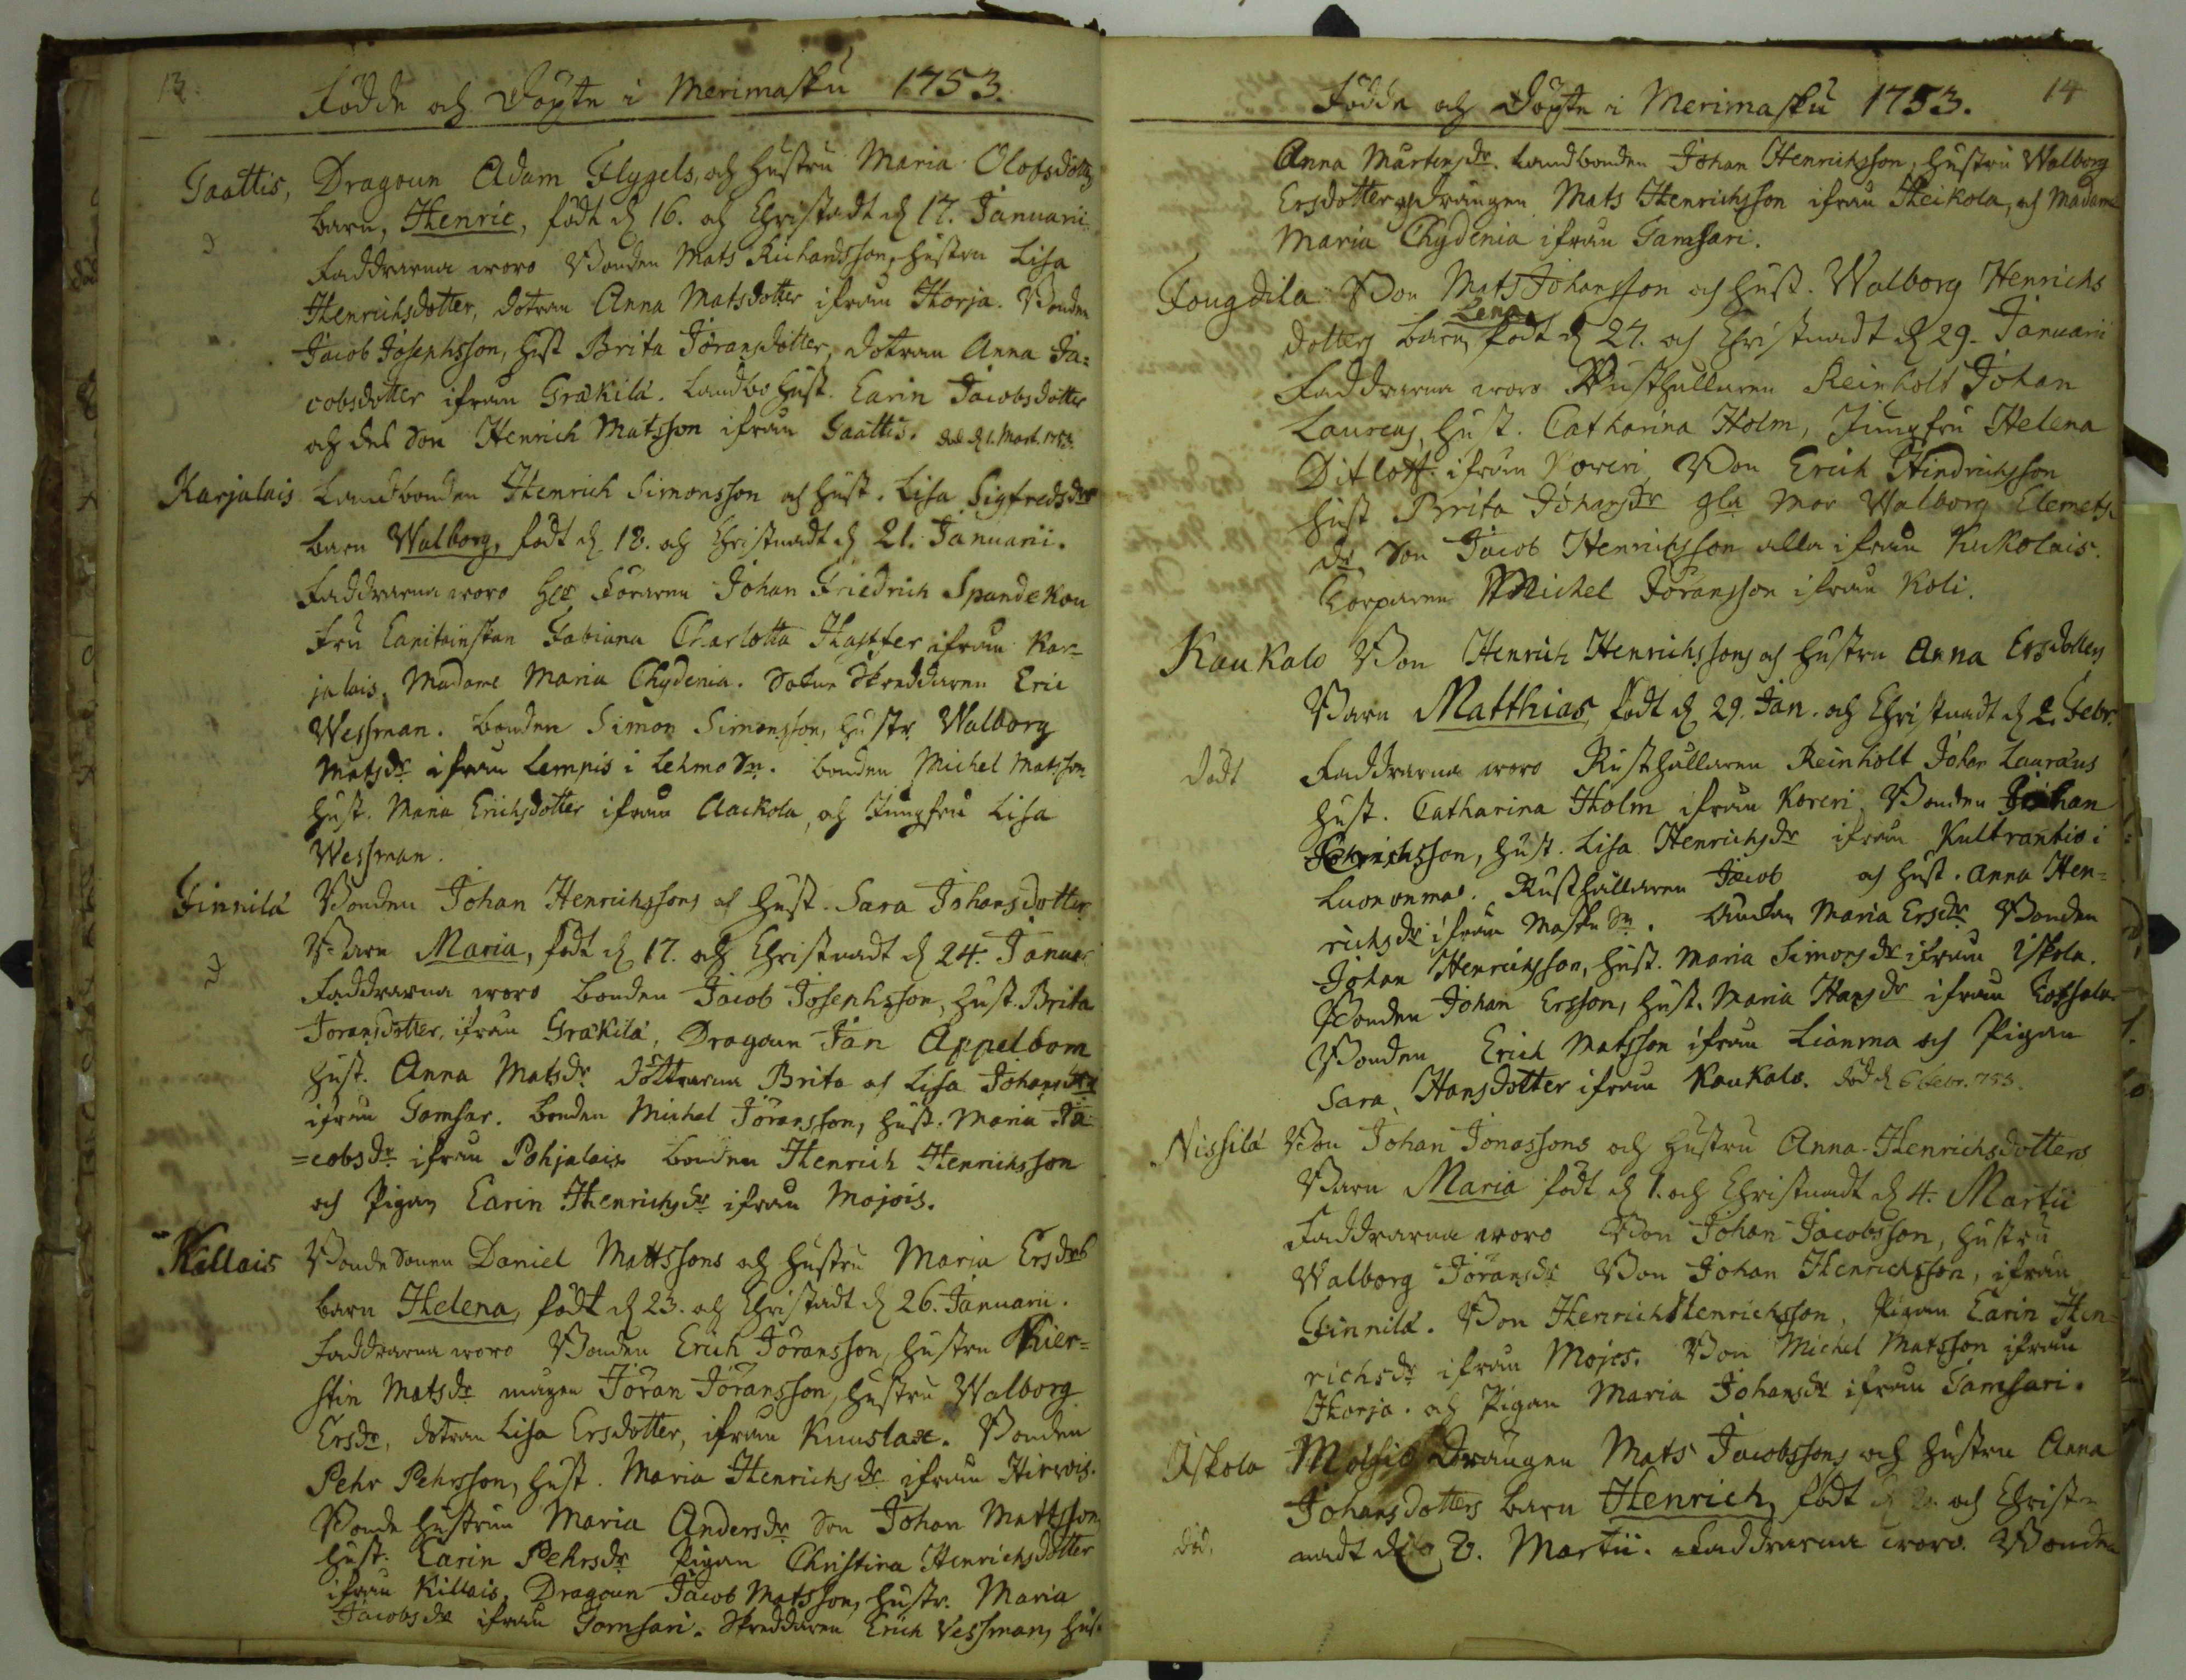 13.
Födde och Döpte i Merimasku 1753.
Gaattis, Dragoun Adam Flygels, och hustru Maria Olofsdotters
barn, Henric, födt d 16. och Christnadt d 17. Januarii
Faddrarna woro Bonden Mats Richardsson, hustru Lisa
Henrichsdotter, dotran Anna Matsdotter ifrån Korja. Bonden
Jacob Josephsson, hust Brita Jöransdotter, dotran Anna Ja=
cobsdotter ifrån Gräkilä. Landbo hust. Carin Jacobsdotter
och des Son Henrich Matsson ifrån Gaattis. död d 1. Mart. 1753.
Karjalais Landbonden Henrich Simonsson och hust. Lisa Sigfredsdrs
barn Walborg, födt d. 18. och Christnadt d 21. Januarii.
Faddrarna woro Föraren Johan Friedrich Spandekou
Fru Capitainskan Fabiana Charlotta Hästfer ifrån Kar=
jalais, Madame Maria Chydenia. Skreddaren Eric
Wessman. bonden Simon Simonsson, hustr. Walborg
Matsdr ifrån Lempis i Lehmo Sn. bonden Michel Matsson
hust. Maria Erichsdotter ifrån Aackola, och Jungfru Lisa
Wessman.
Finnilä Bonden Johan Henrichssons och hust. Sara Johansdotter
Barn Maria, födt d 17. och Christnadt d 24. Januar.
Faddrarna woro bonden Jacob Josephsson, hust. Brita
Joransdotter, ifrån Gräkilä, Dragoun Jan Appelbom
hust. Anna Matsdr döttrarna Brita och Lisa Johansdr
ifrån Tamsar. bonden Michel Jöransson, hust. Maria Ja
=cobsdr ifrån Pohjalais bonden Henrich Henrichsson
och Pigan Carin Henrichsdr ifrån Mojois.
Killais Bonde Sonen Daniel Mattssons och hustru Maria Ersdrs
barn Helena, födt d 23. och Christadt d 26. Januarii.
Faddrarna woro Bonden Erich Joransson, hustru Kier=
stin Matsdr mågen Jöran Jöransson, hustru Walborg
Ersdr, dotran Lisa Ersdotter, ifrån Kuuslax. Bonden
Pehr Pehrsson, hust. Maria Henrichsdr ifrån Hirwis.
Bonde hustrun Maria Andersdr Son Johan Mattsson
hust. Carin Pehrsdr Pigan Christina Henrichsdotter
ifrån Killais, Dragoun Jacob Matsson, hustr. Maria
Jacobsdr ifrån Tamsari. Skreddaren Erich Vessman, hust.
14
Födde och Döpte i Merimasku 1753.
Anna Mårtensdr. Landbonden Johan Henrichsson, hustru Walborg
Ersdotter och Drängen Mats Henrichsson ifrån Heikola, och Madame
Maria Chydenia ifrån Tamsari.
Fougdila Bon Mats Johansson och hust. Walborg Henrichs
Lena
dotters barn, födt d 27. och Christnadt d 29. Januarii
Faddrarna woro Rusthållaren Reinholt Johan
Laureus, hust. Catharina Holm, Jungfru Helena
Ditloff ifrån Koreri, Bon Erich Hindrichsson
hust Brita Johansdr gla mor Walborg Clemets
dr. Son Jacob Henrichsson alla ifrån Kukolais.
Torparen Michel Joransson ifrån Koli.
Kaukalo Bon Henrich Henrichssons och hustru Anna Ersdotters
Barn Matthias, födt d 29. Jan. och Christnadt d 2. Febr.
dödt Faddrarna woro Rusthållaren Reinholt Johan Lauræus
hust. Catharina Holm ifrån Koreri. Bonden Johan
Henrichsson, hust. Lisa Henrichsdr ifrån Kultrantio i
Luononma. Rusthållaren Jacob och hust. Anna Hen=
richsdr ifrån Masku Sn. Maria Ersdr Bonden
Johan Henrichsson, hust. Maria Simonsdr ifrån Iskola.
Bonden Johan Ersson, hust. Maria Hansdr ifrån
Bonden Erich Matsson ifrån Lianma och Pigan
Sara Hansdotter ifrån Kaukalo. död d 6 febr. 753.
Nissilä Bon Johan Jonassons och hustru Anna Henrichsdotters
Barn Maria födt d 1. och Christnadt d 4. Martii
Faddrarna woro Bon Johan Jacobsson, hustru
Walborg Jöransdr Bon Johan Henrichsson, ifrån
Finnilä. Bon Henrich Henrichsson, Pigan Carin Hen=
richsdr ifrån Mojos. Bon Michel Matsson ifrån
Korja. och Pigan Maria Johansdr ifrån Tamsari.
Iskola Drängen Mats Jacobssons och hustru Anna
Johansdotters barn Henrich, födt d och Christ=
död. nadt d Martii. Faddrarna woro. Bonden